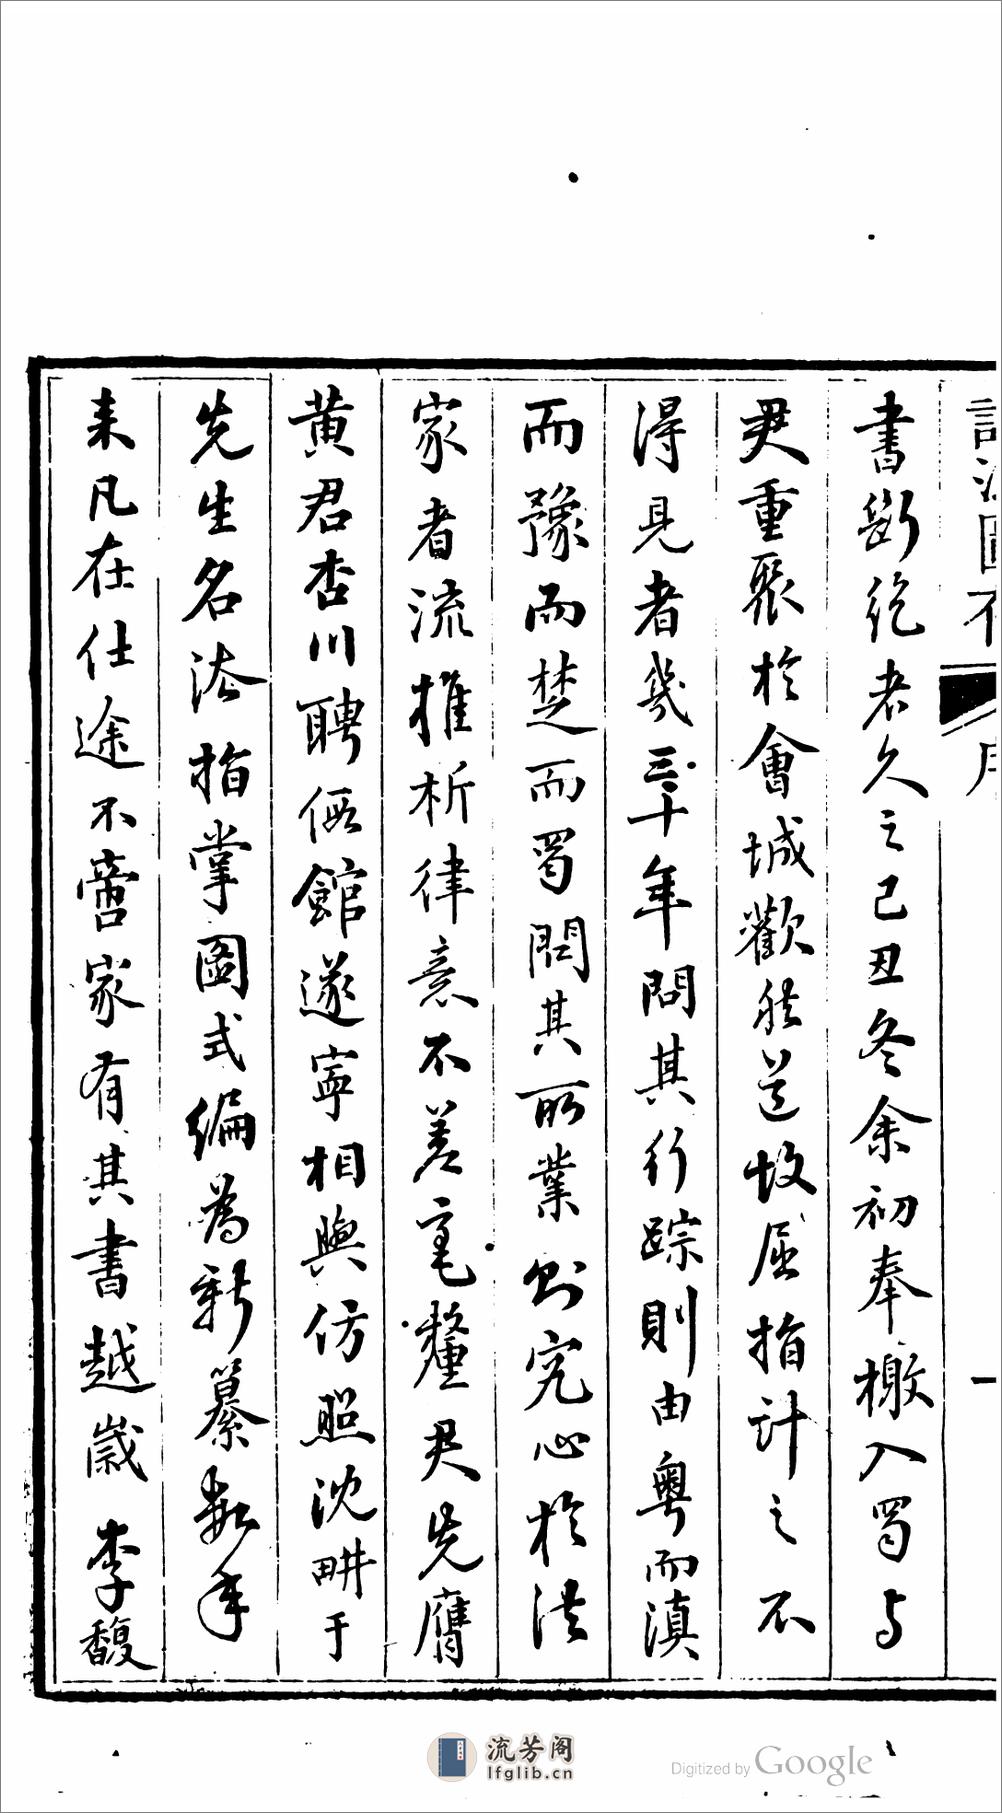 書斷絕者久之己丑冬余初奉檄入蜀与
尹重聚於會城歡然道故屈指計之不
淂見者幾三十年問其行踪則由粤而滇
而豫而楚而蜀問其所業則究心於法
家者流推析律意不差毫釐尹先膺
黃君杏川聘假館遂寧相與仿照沈畊于
先生名法指掌圖式編爲新纂數年
来凡在仕途不啻家有其書越歲李馥
序
一
流芳阁
lfglib.cn
Digitized by Google